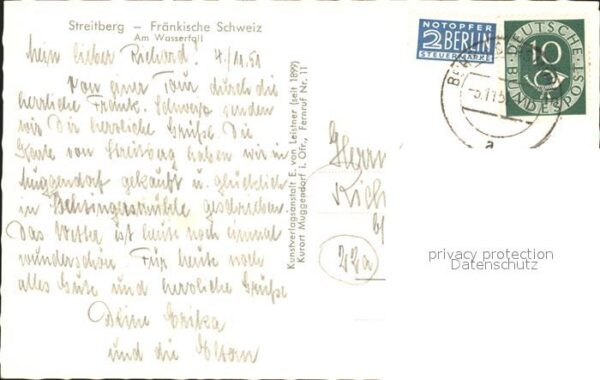 Streitberg – Fränkische Schweiz
Am Wasserfall
Mein lieber Richard! 4./11.51
Von einer Tour durch die
herrliche Fränk. Schweiz senden
wir Dir herrliche Grüße. Die
Karte von Streitberg haben wir in
Muggendorf gekauft u. glücklich
in Behringersmühle geschrieben.
Das Wetter ist heute noch einmal
wunderschön. Für heute noch
alles Gute und herzliche Grüße
Deine Erika
und die Eltern
Kunstverlagsanstalt E. von Leistner (seit 1899)
Kurort Muggendorf i. Ofr., Fernruf Nr. 11
NOTOPFER
2 BERLIN
STEUERMARKE
DEUTSCHE
BUNDESPOST
10
-5.11.5
a
Herrn
Rich
22a
privacy protection
Datenschutz